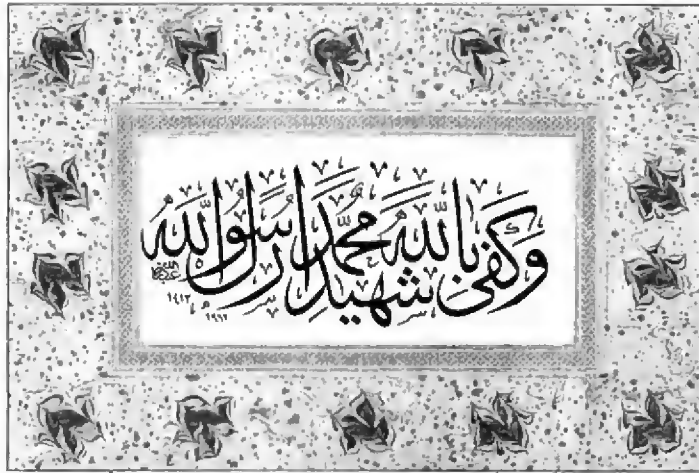 وَكَفَىٰ بِاللَّهِ شَهِيدًا مُحَمَّدٌ رَسُولُ اللَّهِ
١٤١٢